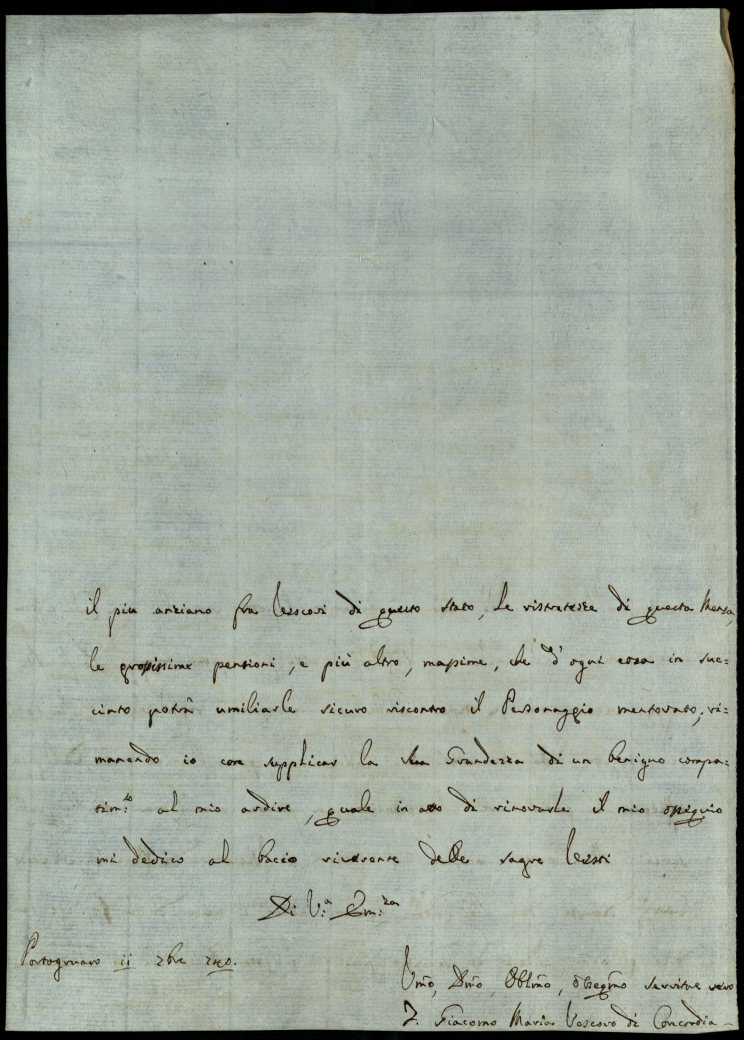 il piu anziano fra Vescovi di questo stato, le ristretezze di questa Mensa,
le grossissime pensioni, e più altro, massime, che d'ogni cosa in suc=
cinto potrà umiliarle sicuro riscontro il Personaggio mentovato; ri=
manendo io con supplicar la Sua Grandezza di un benigno compa=
tim.to al mio ardire, quale in atto di rinovarle il mio ossequio
mi dedico al baccio riverente delle sagre Vesti
Di V.a Em.za
Portogruaro 11
Umo, Dmo Oblmo, obseqmo servitore vero
Giacomo Maria Vescovo di Concordia